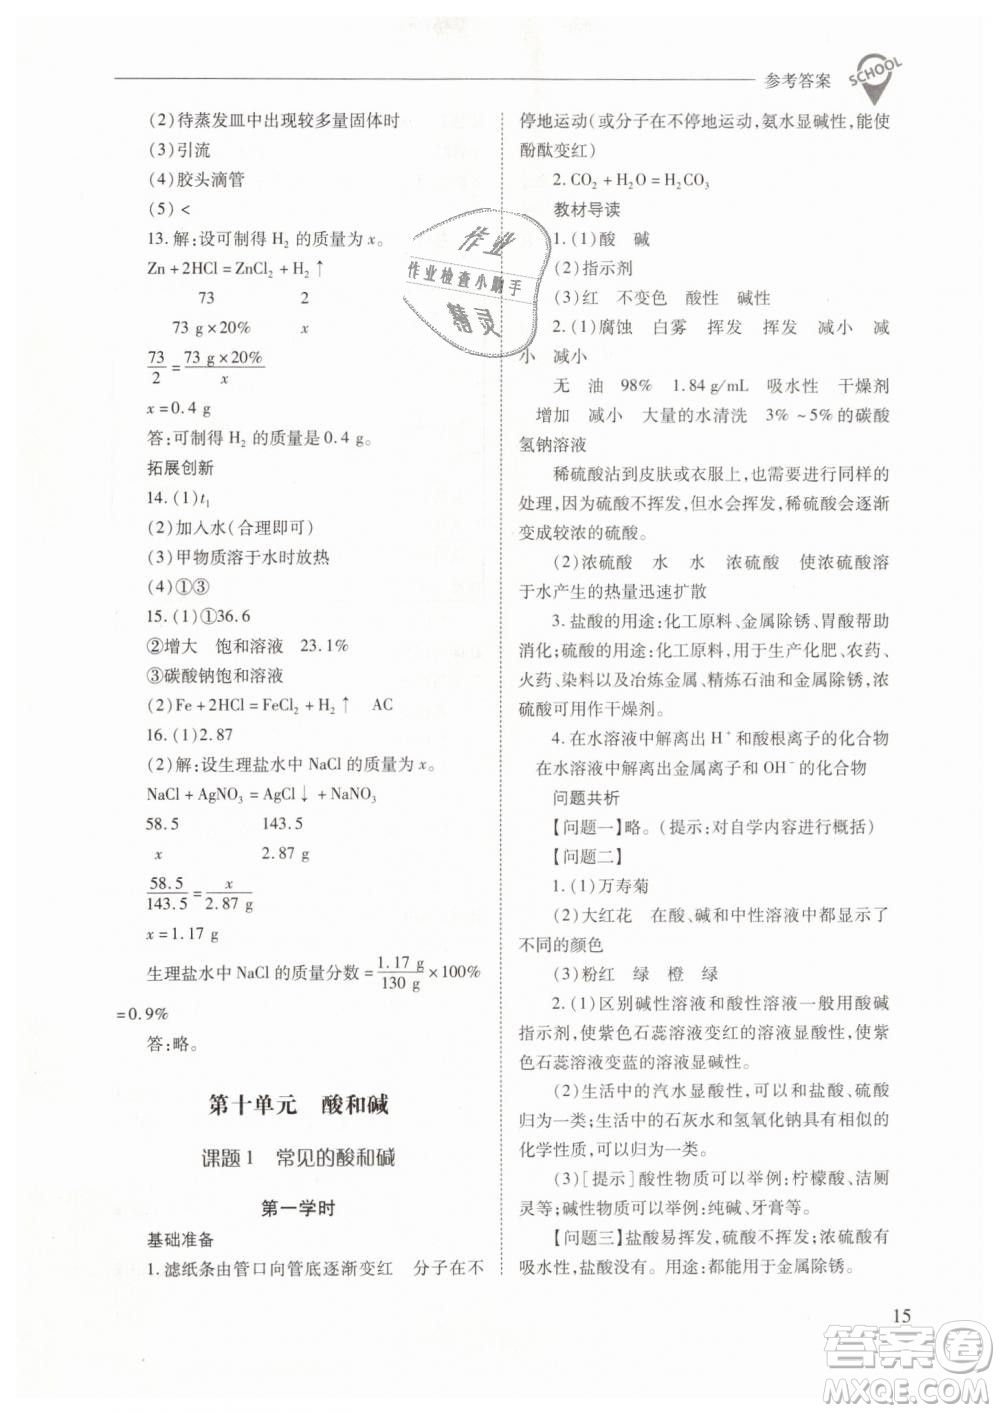 参考答案
SCHOOL
(2)待蒸发皿中出现较多量固体时
(3)引流
(4)胶头滴管
(5)<
13.解:设可制得 H₂ 的质量为 x。
Zn+2HCl=ZnCl₂+H₂↑
73 2
73 g×20% x
73/2=73 g×20%/x
x=0.4 g
答:可制得 H₂ 的质量是 0.4 g。
拓展创新
14.(1)t₁
(2)加入水(合理即可)
(3)甲物质溶于水时放热
(4)①③
15.(1)①36.6
②增大 饱和溶液 23.1%
③碳酸钠饱和溶液
(2)Fe+2HCl=FeCl₂+H₂↑ AC
16.(1)2.87
(2)解:设生理盐水中 NaCl 的质量为 x。
NaCl+AgNO₃=AgCl↓+NaNO₃
58.5 143.5
x 2.87 g
58.5/143.5=x/2.87 g
x=1.17 g
生理盐水中 NaCl 的质量分数=1.17 g/130 g×100%
=0.9%
答:略。
第十单元 酸和碱
课题1 常见的酸和碱
第一学时
基础准备
1.滤纸条由管口向管底逐渐变红 分子在不
停地运动(或分子在不停地运动,氨水显碱性,能使
酚酞变红)
2.CO₂+H₂O=H₂CO₃
教材导读
1.(1)酸 碱
(2)指示剂
(3)红 不变色 酸性 碱性
2.(1)腐蚀 白雾 挥发 挥发 减小 减
小 减小
无 油 98% 1.84 g/mL 吸水性 干燥剂
增加 减小 大量的水清洗 3%~5%的碳酸
氢钠溶液
稀硫酸沾到皮肤或衣服上,也需要进行同样的
处理,因为硫酸不挥发,但水会挥发,稀硫酸会逐渐
变成较浓的硫酸。
(2)浓硫酸 水 水 浓硫酸 使浓硫酸溶
于水产生的热量迅速扩散
3.盐酸的用途:化工原料、金属除锈、胃酸帮助
消化;硫酸的用途:化工原料,用于生产化肥、农药、
火药、染料以及冶炼金属、精炼石油和金属除锈,浓
硫酸可用作干燥剂。
4.在水溶液中解离出 H⁺和酸根离子的化合物
在水溶液中解离出金属离子和 OH⁻的化合物
问题共析
【问题一】略。(提示:对自学内容进行概括)
【问题二】
1.(1)万寿菊
(2)大红花 在酸、碱和中性溶液中都显示了
不同的颜色
(3)粉红 绿 橙 绿
2.(1)区别碱性溶液和酸性溶液一般用酸碱
指示剂,使紫色石蕊溶液变红的溶液显酸性,使紫
色石蕊溶液变蓝的溶液显碱性。
(2)生活中的汽水显酸性,可以和盐酸、硫酸
归为一类;生活中的石灰水和氢氧化钠有相似的
化学性质,可以归为一类。
(3)[提示]酸性物质可以举例:柠檬酸、洁厕
灵等;碱性物质可以举例:纯碱、牙膏等。
【问题三】盐酸易挥发,硫酸不挥发;浓硫酸有
吸水性,盐酸没有。用途:都能用于金属除锈。
15
作业
作业检查小助手
精灵
答案圈
MXQE.COM